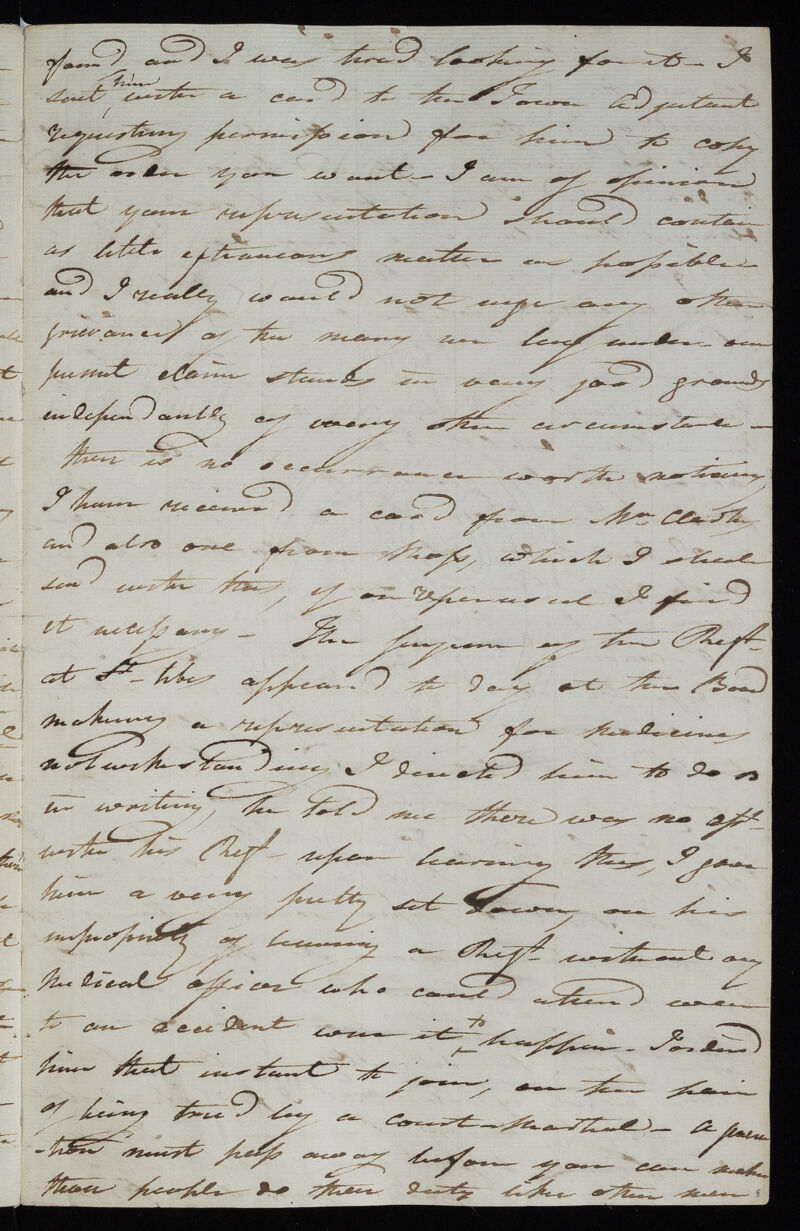 found and I was tired looking for it - I
sent him with a card to the Town Adjutant
requesting permission for him to copy
the order you want - I am of opinion
that your representation should contain
as little extraneous matter as possible
and I really would not urge any other
grievance of the many we lay under - our
present claim stands in very good grounds
independantly of every other circumstance -
there is no occurrance worth noticing
I have received a card from Mr
and also one from which I shall
send with this, if on reperusal I find
it necessary - The Surgeon of the Regt-
at St- Ubes appeared to day at the Board
making a representation for Medicines
notwithstanding I directed him to do so
in writing, he told me there was no asst-
with his Regt- upon hearing this, I gave
him a very pretty set down on his
impropriety of leaving a Regt without any
Medical officer who could attend even
to an accident were it to happen - I ordered
him that instant to join, on the pain
of being tried by a court-Martial - A genera
-tion must pass away before you can make
these people do their duty like other men